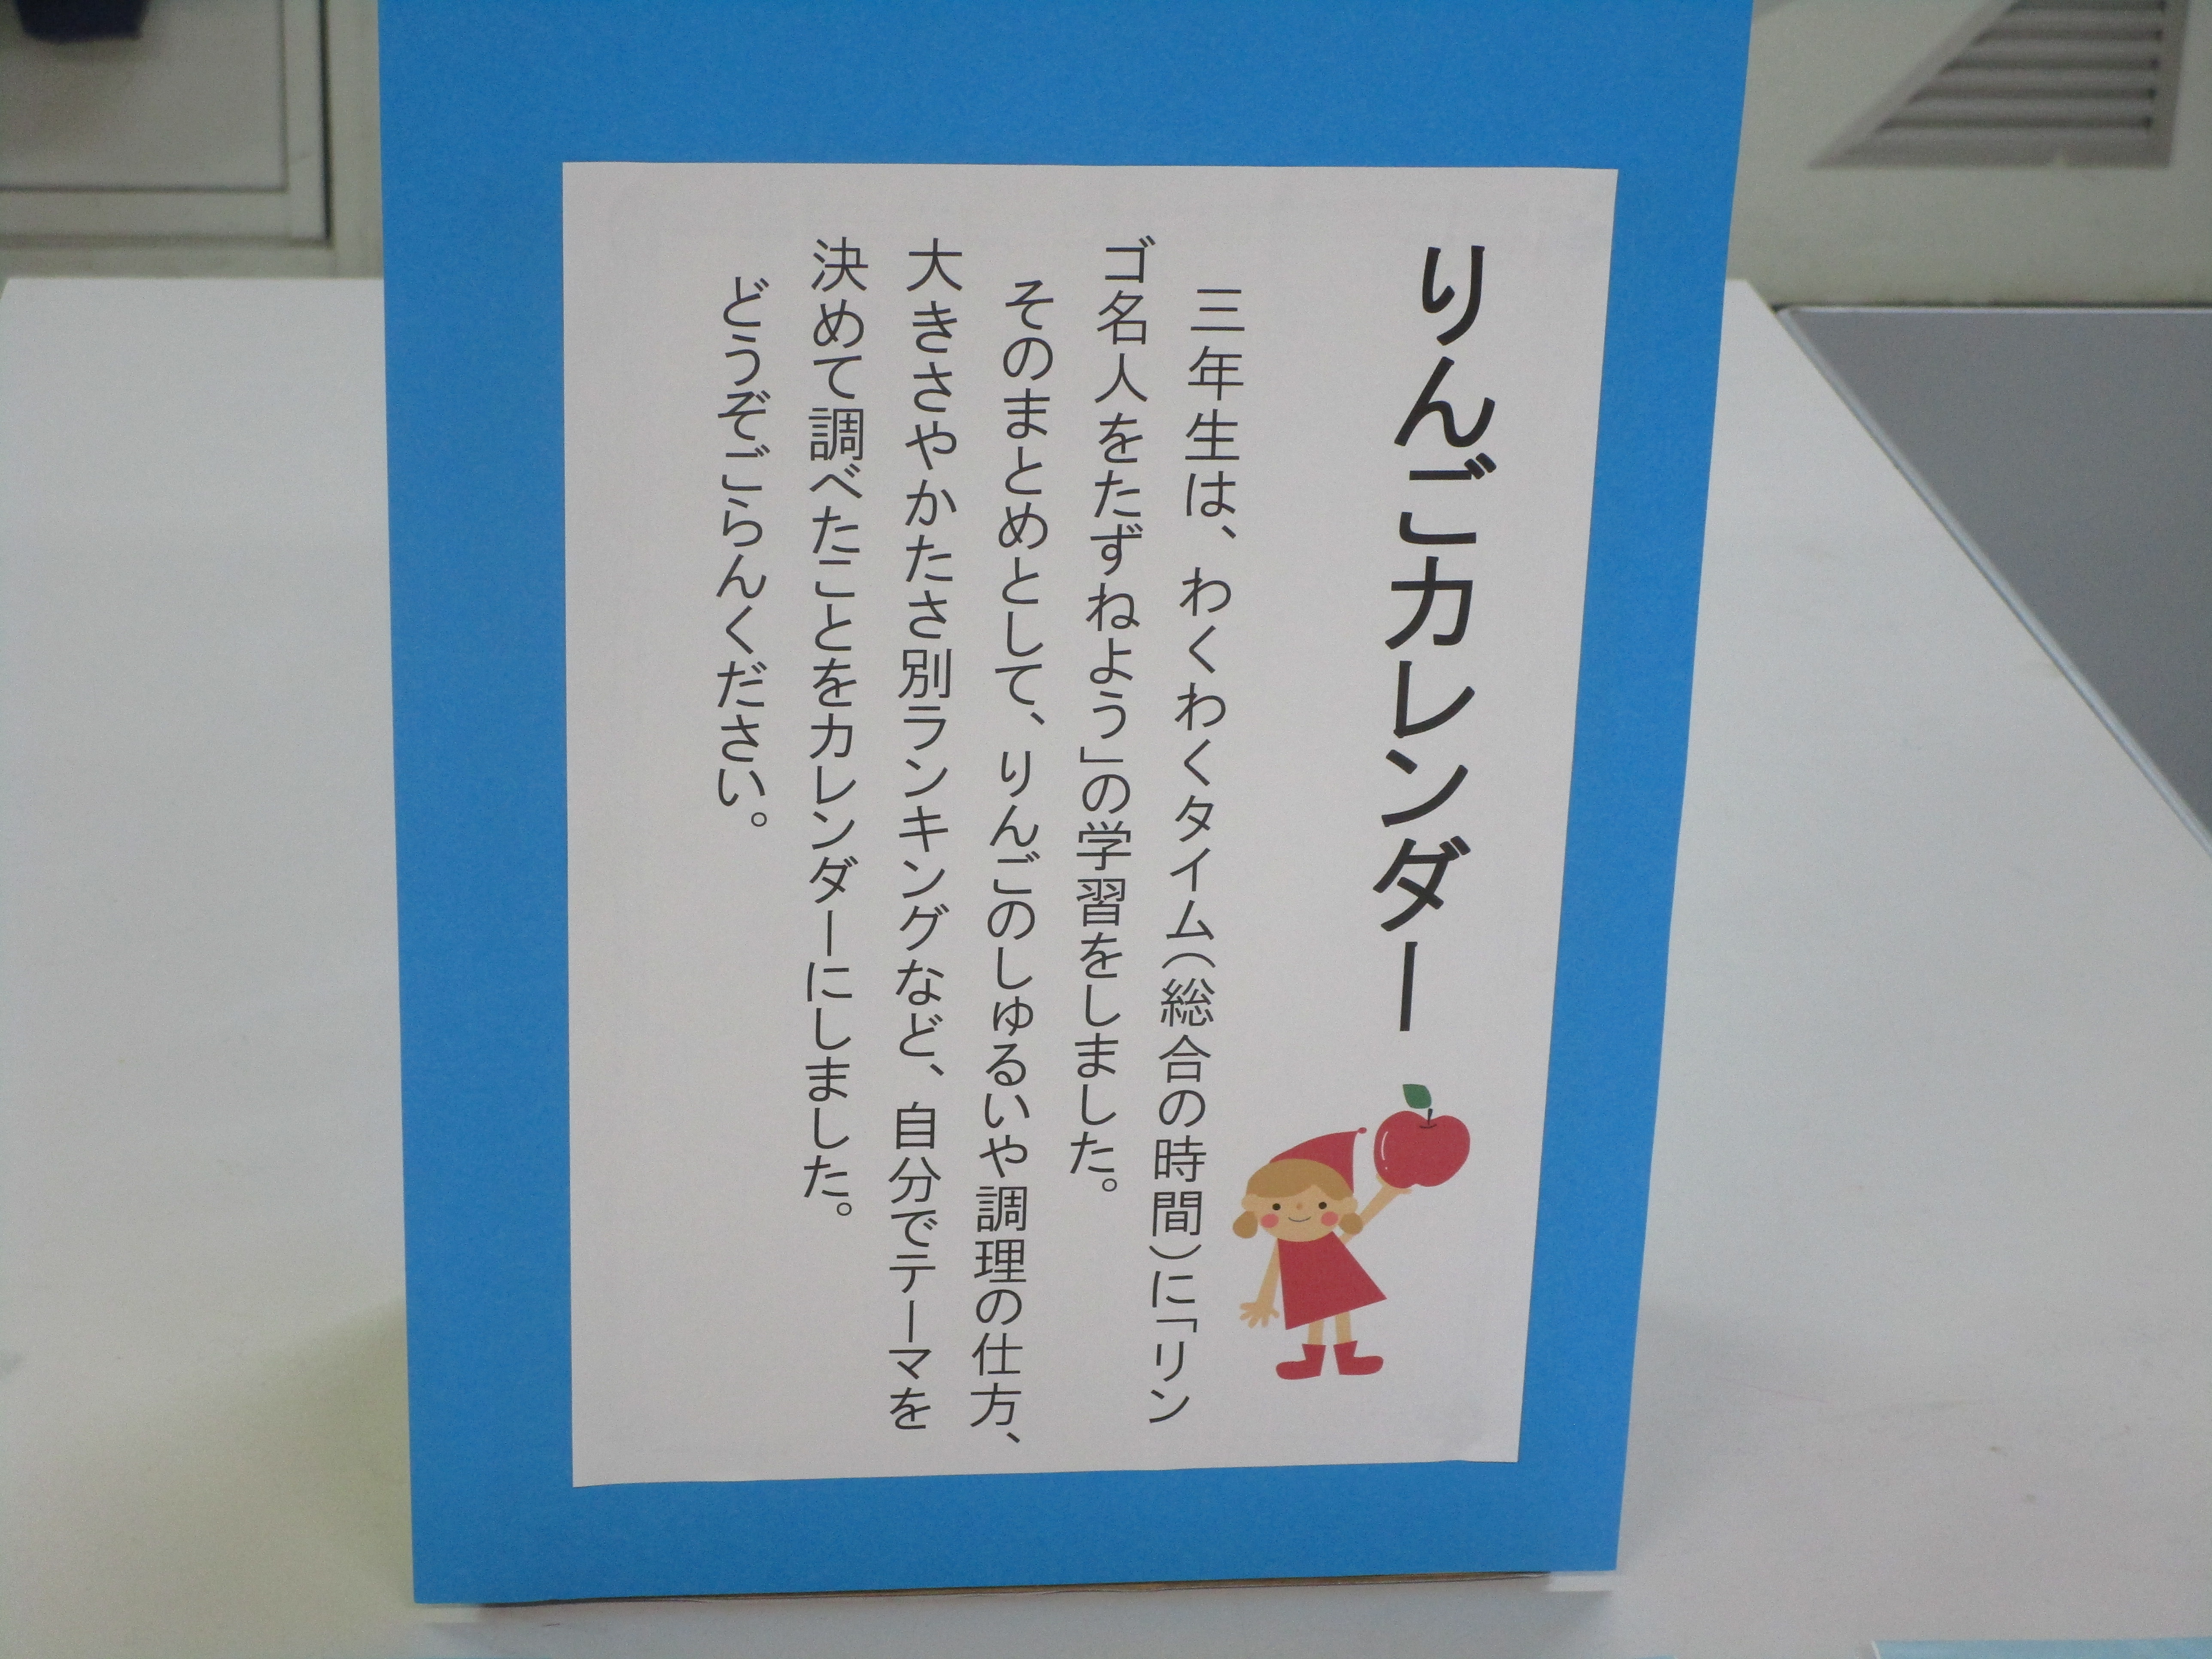 りんごカレンダー
三年生は、わくわくタイム（総合の時間）に「リン
ゴ名人をたずねよう」の学習をしました。
そのまとめとして、りんごのしゅるいや調理の仕方、
大きさやかたさ別ランキングなど、自分でテーマを
決めて調べたことをカレンダーにしました。
どうぞごらんください。